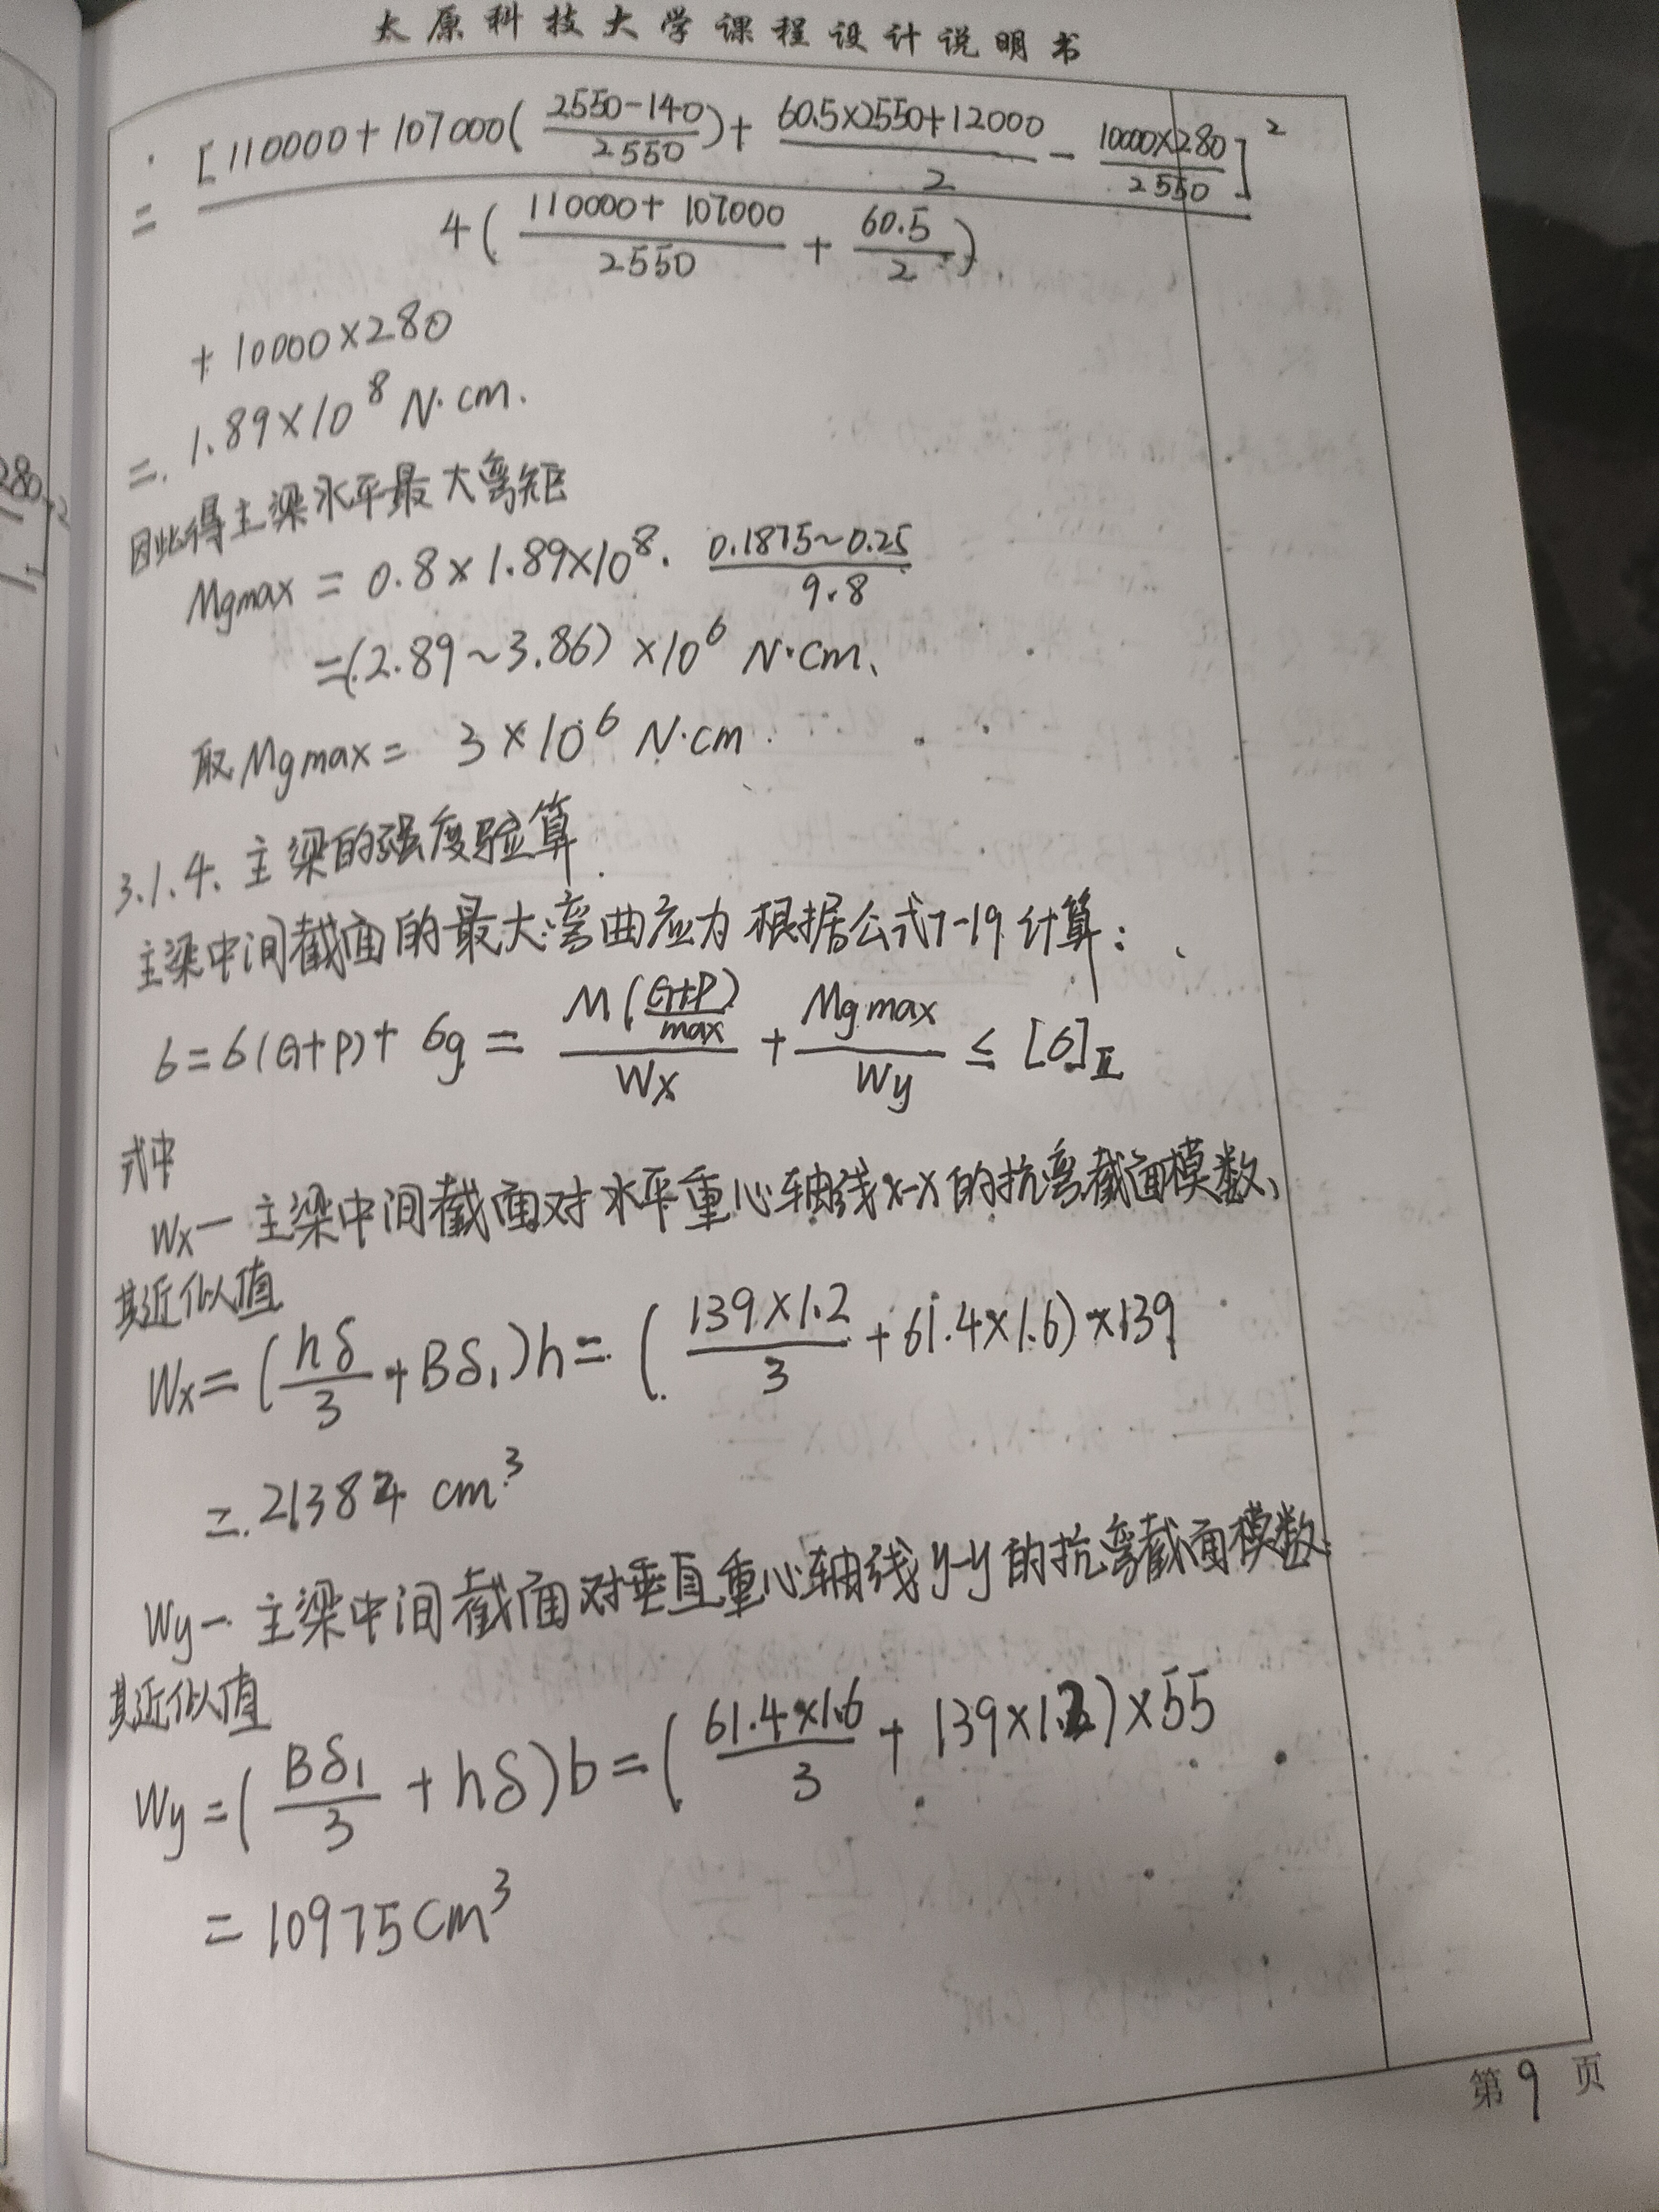 太原科技大学课程设计说明书
= [110000+107000(2550-140/2550)+ 60.5×2550+12000/2 - 10000×280/2550]²
4(110000+107000/2550 + 60.5/2)
+10000×280
= 1.89×10⁸ N·cm.
因此得主梁水平最大弯矩
Mgmax = 0.8×1.89×10⁸· 0.1875~0.25/9.8
=(2.89~3.86)×10⁶ N·cm、
取Mgmax = 3×10⁶ N·cm
3.1.4. 主梁的强度验算
主梁中间截面的最大弯曲应为根据公式7-19计算:
6=6(G+P)+6g = M(G+P/max)/Wx + Mgmax/Wy ≤ [6]Ⅱ
式中
Wx— 主梁中间截面对水平重心轴线x-x的抗弯截面模数、
其近似值
Wx=(hδ/3+Bδ₁)h=(139×1.2/3+61.4×1.6)×139
=21384 cm³
Wy— 主梁中间截面对垂直重心轴线y-y的抗弯截面模数.
其近似值
Wy=(Bδ₁/3+hδ)b=(61.4×1.6/3+139×1.2)×55
=10975cm³
第9页
280